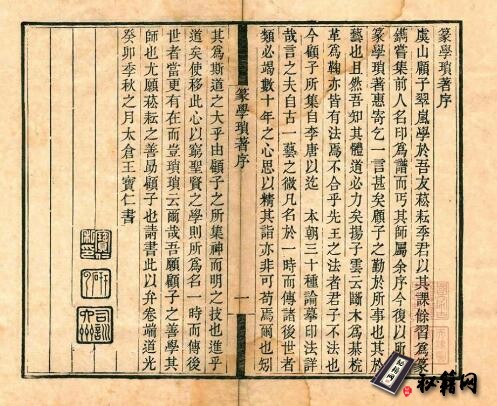 篆學瑣著序
虞山顧子翠嵐學於吾友菘耘李君以其課餘習爲篆
鐫嘗集前人名印爲譜而丐其師屬余序今復以所
篆學瑣著惠寄乞一言甚矣顧子之勤於所事也其於
藝也且然吾知其體道必力矣揚子雲云斷木爲棊梡
革爲鞠亦皆有法焉不合乎先王之法者君子不法也
今顧子所集自李唐以迄 本朝三十種論摹印法詳
哉言之夫自古一藝之微凡名於一時而傳諸後世者
類必竭數十年之心思以精其詣亦非可苟焉爾也矧
篆學瑣著序 一
其爲斯道之大乎由顧子之所集神而明之技也進乎
道矣使移此心以窮聖賢之學則所爲名一時而傳後
世者當更有在而豈瑣瑣云爾哉吾願顧子之善學其
師也尤願菘耘之善助顧子也請書此以弁卷端道光
癸卯季秋之月太倉王寶仁書
秘籍网